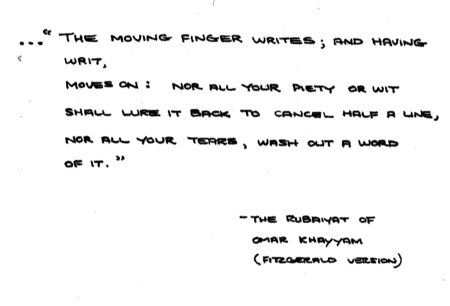 ..." THE MOVING FINGER WRITES; AND HAVING
WRIT,
MOVES ON: NOR ALL YOUR PIETY OR WIT
SHALL LURE IT BACK TO CANCEL HALF A LINE,
NOR ALL YOUR TEARS, WASH OUT A WORD
OF IT."
- THE RUBAIYAT OF
OMAR KHAYYAM
(FITZGERALD VERSION)